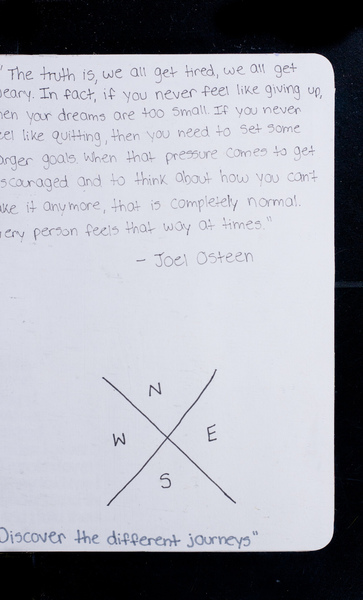 "The truth is, we all get tired, we all get
eary. In fact, if you never feel like giving up,
hen your dreams are too small. If you never
eel like quitting, then you need to set some
arger goals. When that pressure comes to get
scouraged and to think about how you can't
ake it anymore, that is completely normal.
very person feels that way at times."
- Joel Osteen
N
W E
S
Discover the different journeys"